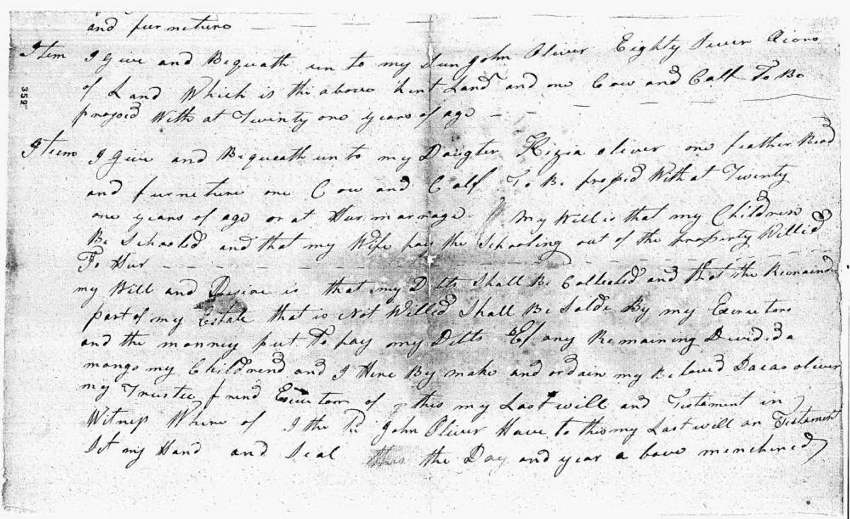 and furneture
Item I Give and Bequath un to my Sun John Oliver Eighty Seven Acors
of Land Which is the above Land and one Cow and Calf To Be
359
With at Twenty one years of age
Iteem I Give and Bequeath un to my Daugter Kizia oliver one feather Bead
and furneture one Cow and Calf To Be With at Twenty
one years of age or at Hur marriage my Will is that my Children
Be Schooled and that my Wife pay the Schooling out of the property Willed
To Hur
my Will and Desire is that my Detts Shall Be Collected and that the Remaind
part of my Estate that is Not Willed Shall Be Solde By my Executors
and the monney put To pay my Detts Ef any Remaining Divided a
mongo my Childrend and I Here By make and ordain my Beloved oliver
my Trustee frend Executors of this my Last will and Testament in
Witness Where of I the John Oliver Have to this my Last will an Testament
Set my Hand and Seal this the Day and year a bove menchined